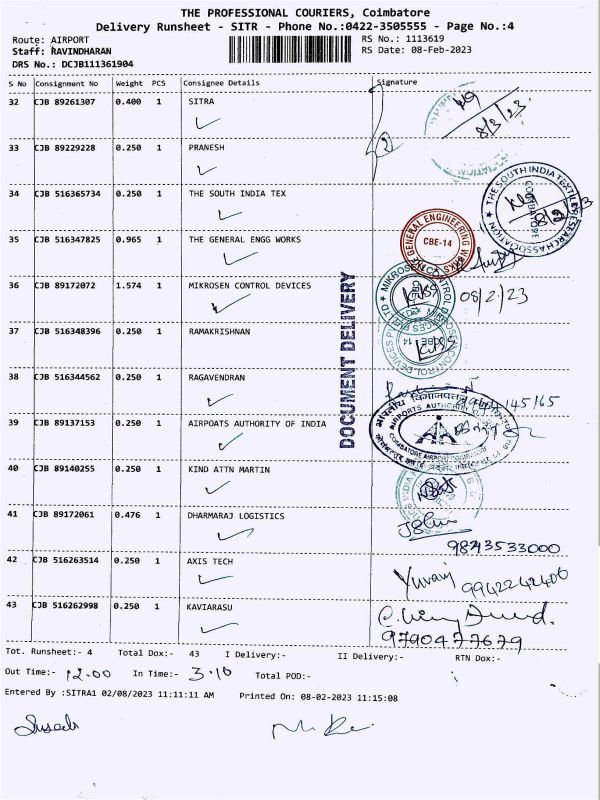 THE PROFESSIONAL COURIERS, Coimbatore
Delivery Runsheet - SITR - Phone No.:0422-3505555 - Page No.:4
Route: AIRPORT
RS No.: 1113619
Staff: RAVINDHARAN
RS Date: 08-Feb-2023
DRS No.: DCJB111361904
S No Consignment No Weight PCS Consignee Details Signature
32 CJB 89261307 0.400 1 SITRA
8/3/23
33 CJB 89229228 0.250 1 PRANESH
34 CJB 516365734 0.250 1 THE SOUTH INDIA TEX
THE SOUTH INDIA TEXTILE RESEARCH ASSOCIATION
COIMBATORE
35 CJB 516347825 0.965 1 THE GENERAL ENGG WORKS
THE GENERAL ENGINEERING WORKS
CBE-14
36 CJB 89172072 1.574 1 MIKROSEN CONTROL DEVICES
08/2/23
DOCUMENT DELIVERY
37 CJB 516348396 0.250 1 RAMAKRISHNAN
38 CJB 516344562 0.250 1 RAGAVENDRAN
39 CJB 89137153 0.250 1 AIRPOATS AUTHORITY OF INDIA
40 CJB 89140255 0.250 1 KIND ATTN MARTIN
41 CJB 89172061 0.476 1 DHARMARAJ LOGISTICS
9873533000
42 CJB 516263514 0.250 1 AXIS TECH
Yuvaraj 9942242406
43 CJB 516262998 0.250 1 KAVIARASU
9790477679
Tot. Runsheet:- 4 Total Dox:- 43 I Delivery:- II Delivery:- RTN Dox:-
Out Time:- 12.00 In Time:- 3.10 Total POD:-
Entered By :SITRA1 02/08/2023 11:11:11 AM Printed On: 08-02-2023 11:15:08